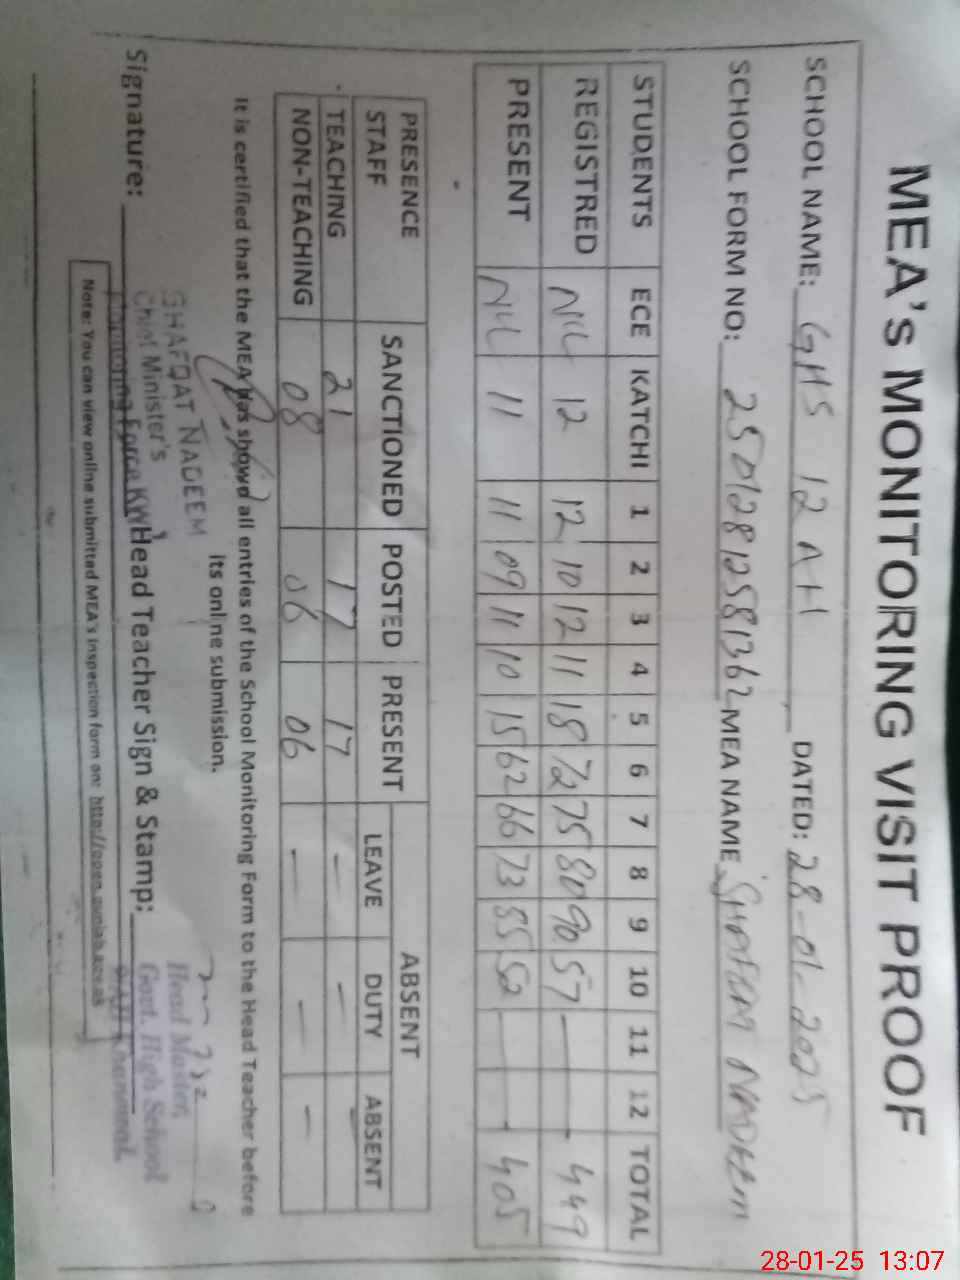 MEA's MONITORING VISIT PROOF
SCHOOL NAME: GHS 12 AH DATED: 28-01-2025
SCHOOL FORM NO: 25012812581362 MEA NAME SHAFQAT NADEEM
STUDENTS ECE KATCHI 1 2 3 4 5 6 7 8 9 10 11 12 TOTAL
REGISTRED NIL 12 12 10 12 11 18 72 75 80 90 57 — — 449
PRESENT NIL 11 11 09 11 10 15 62 66 73 85 52 — — 405
PRESENCE STAFF SANCTIONED POSTED PRESENT ABSENT
LEAVE DUTY ABSENT
TEACHING 21 17 17 — — —
NON-TEACHING 08 06 06 — — —
It is certified that the MEA has shown all entries of the School Monitoring Form to the Head Teacher before
its online submission.
SHAFQAT NADEEM
Chief Minister's
Monitoring Force KWL
Signature: Head Teacher Sign & Stamp:
Head Master,
Govt. High School
Khanewal.
Note: You can view online submitted MEA's inspection form on: http://open.punjab.gov.pk
28-01-25 13:07